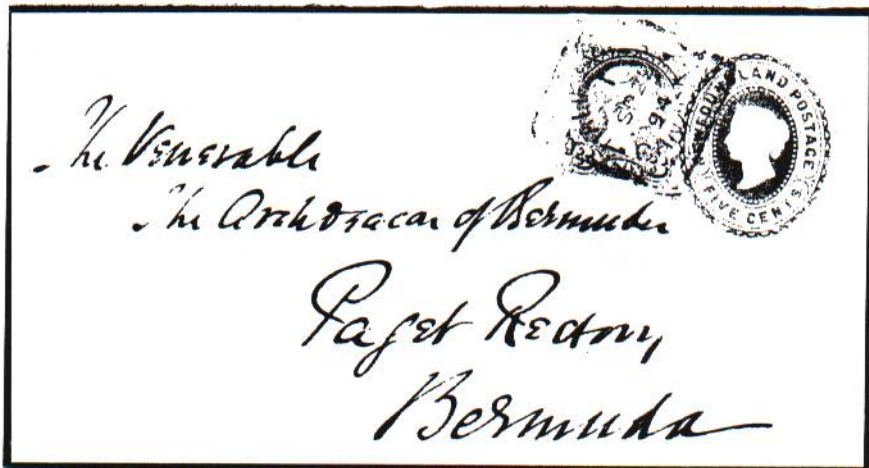 NEWFOUNDLAND POSTAGE
FIVE CENTS
94
The Venerable
The Archdeacon of Bermuda
Paget Rectory
Bermuda